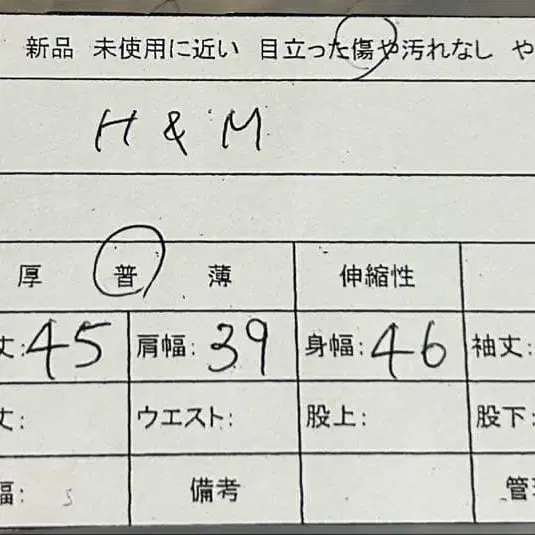 新品 未使用に近い 目立った傷や汚れなし や
H & M
厚 普 薄 伸縮性
丈: 45 肩幅: 39 身幅: 46 袖丈:
丈: ウエスト: 股上: 股下:
幅: 備考 管